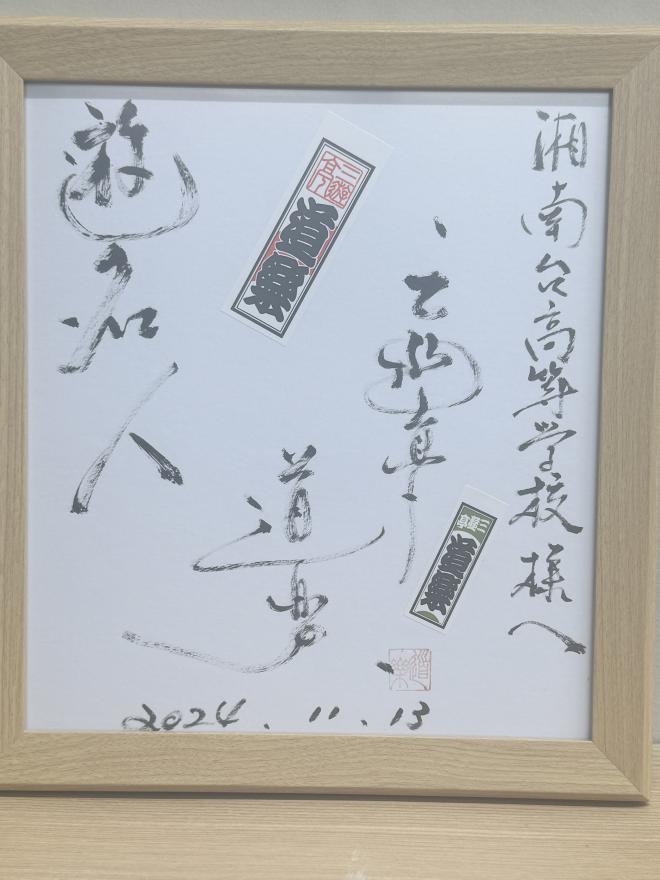 湘南台高等学校様へ
三遊亭
道楽
遊名人
三遊亭
道樂
三遊亭
道樂
2024.11.13